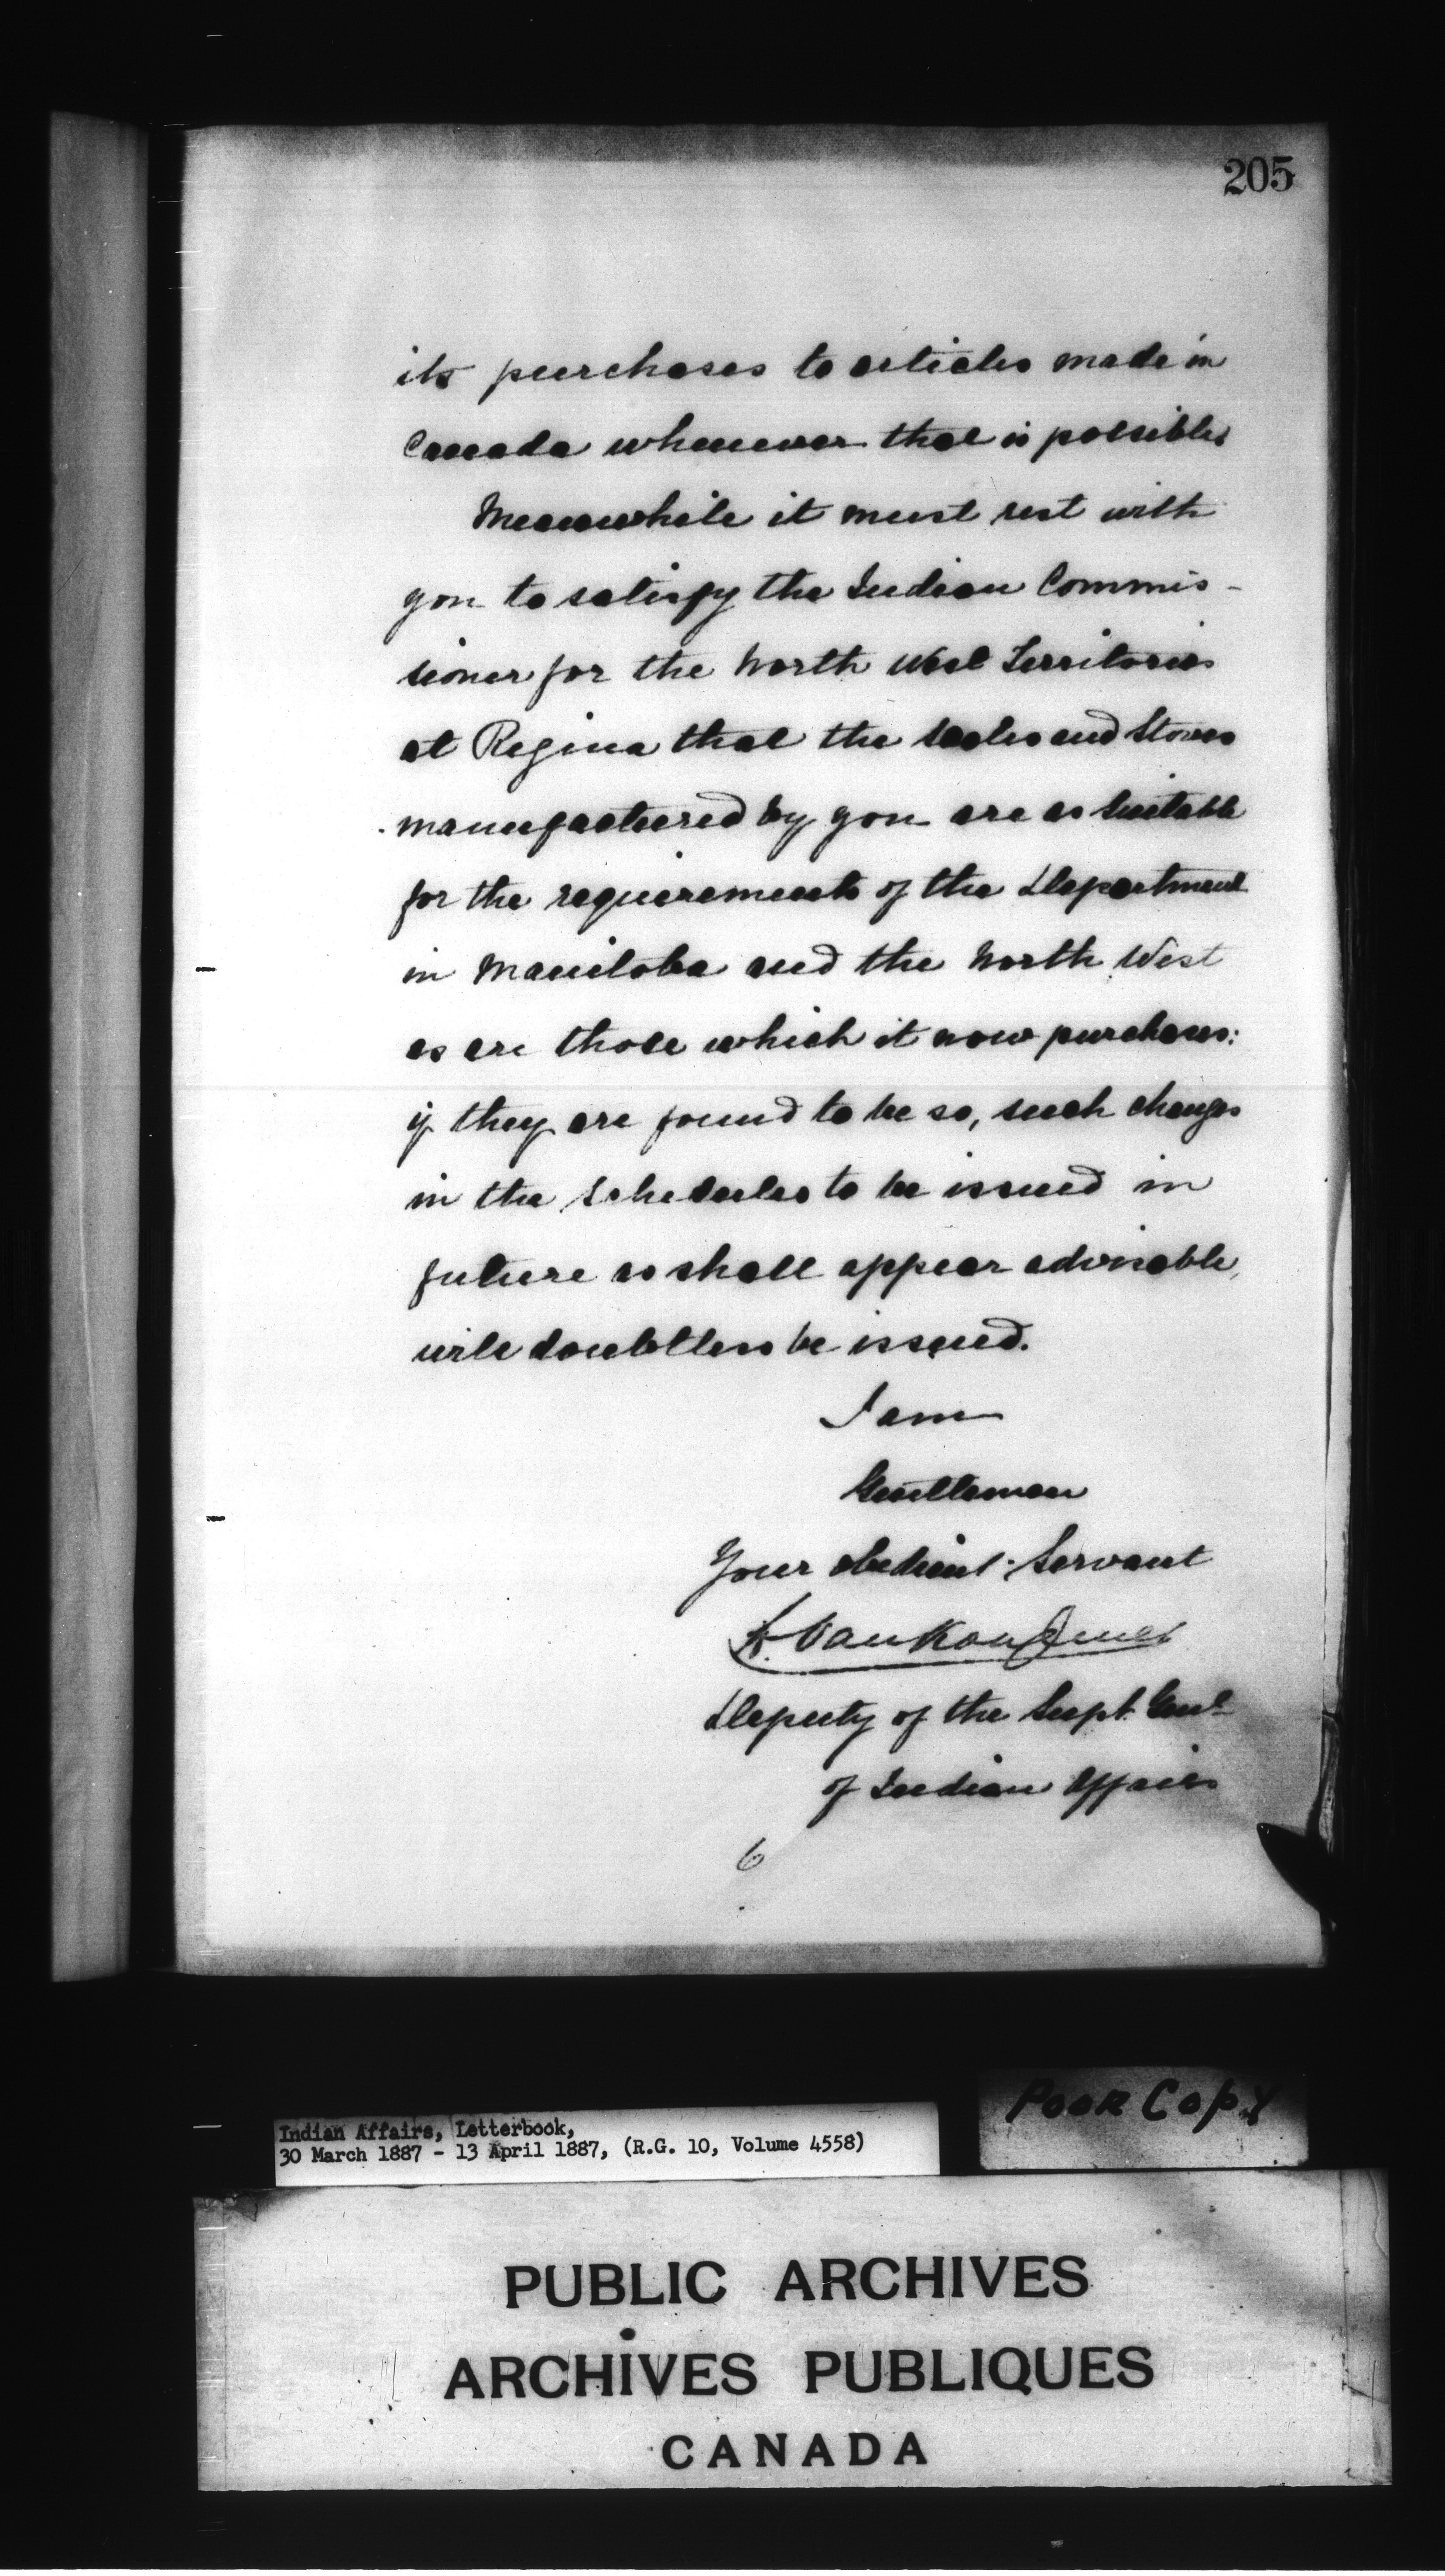 205
its purchases to articles made in
Canada whenever that is possible,
Meanwhile it must rest with
you to satisfy the Indian Commis-
sioner for the North West Territories
at Regina that the scales and Stoves
manufactured by you are as suitable
for the requirements of the Department
in Manitoba and the North West
as are those which it now purchases:
if they are found to be so, such changes
in the schedules to be issued in
future as shall appear advisable,
will doubtless be issued.
I am
Gentlemen
Your obedient Servant
L. VanKoughnet
Deputy of the Supt. Genl
of Indian Affairs
6
POOR COPY
Indian Affairs, Letterbook,
30 March 1887 - 13 April 1887, (R.G. 10, Volume 4558)
PUBLIC ARCHIVES
ARCHIVES PUBLIQUES
CANADA